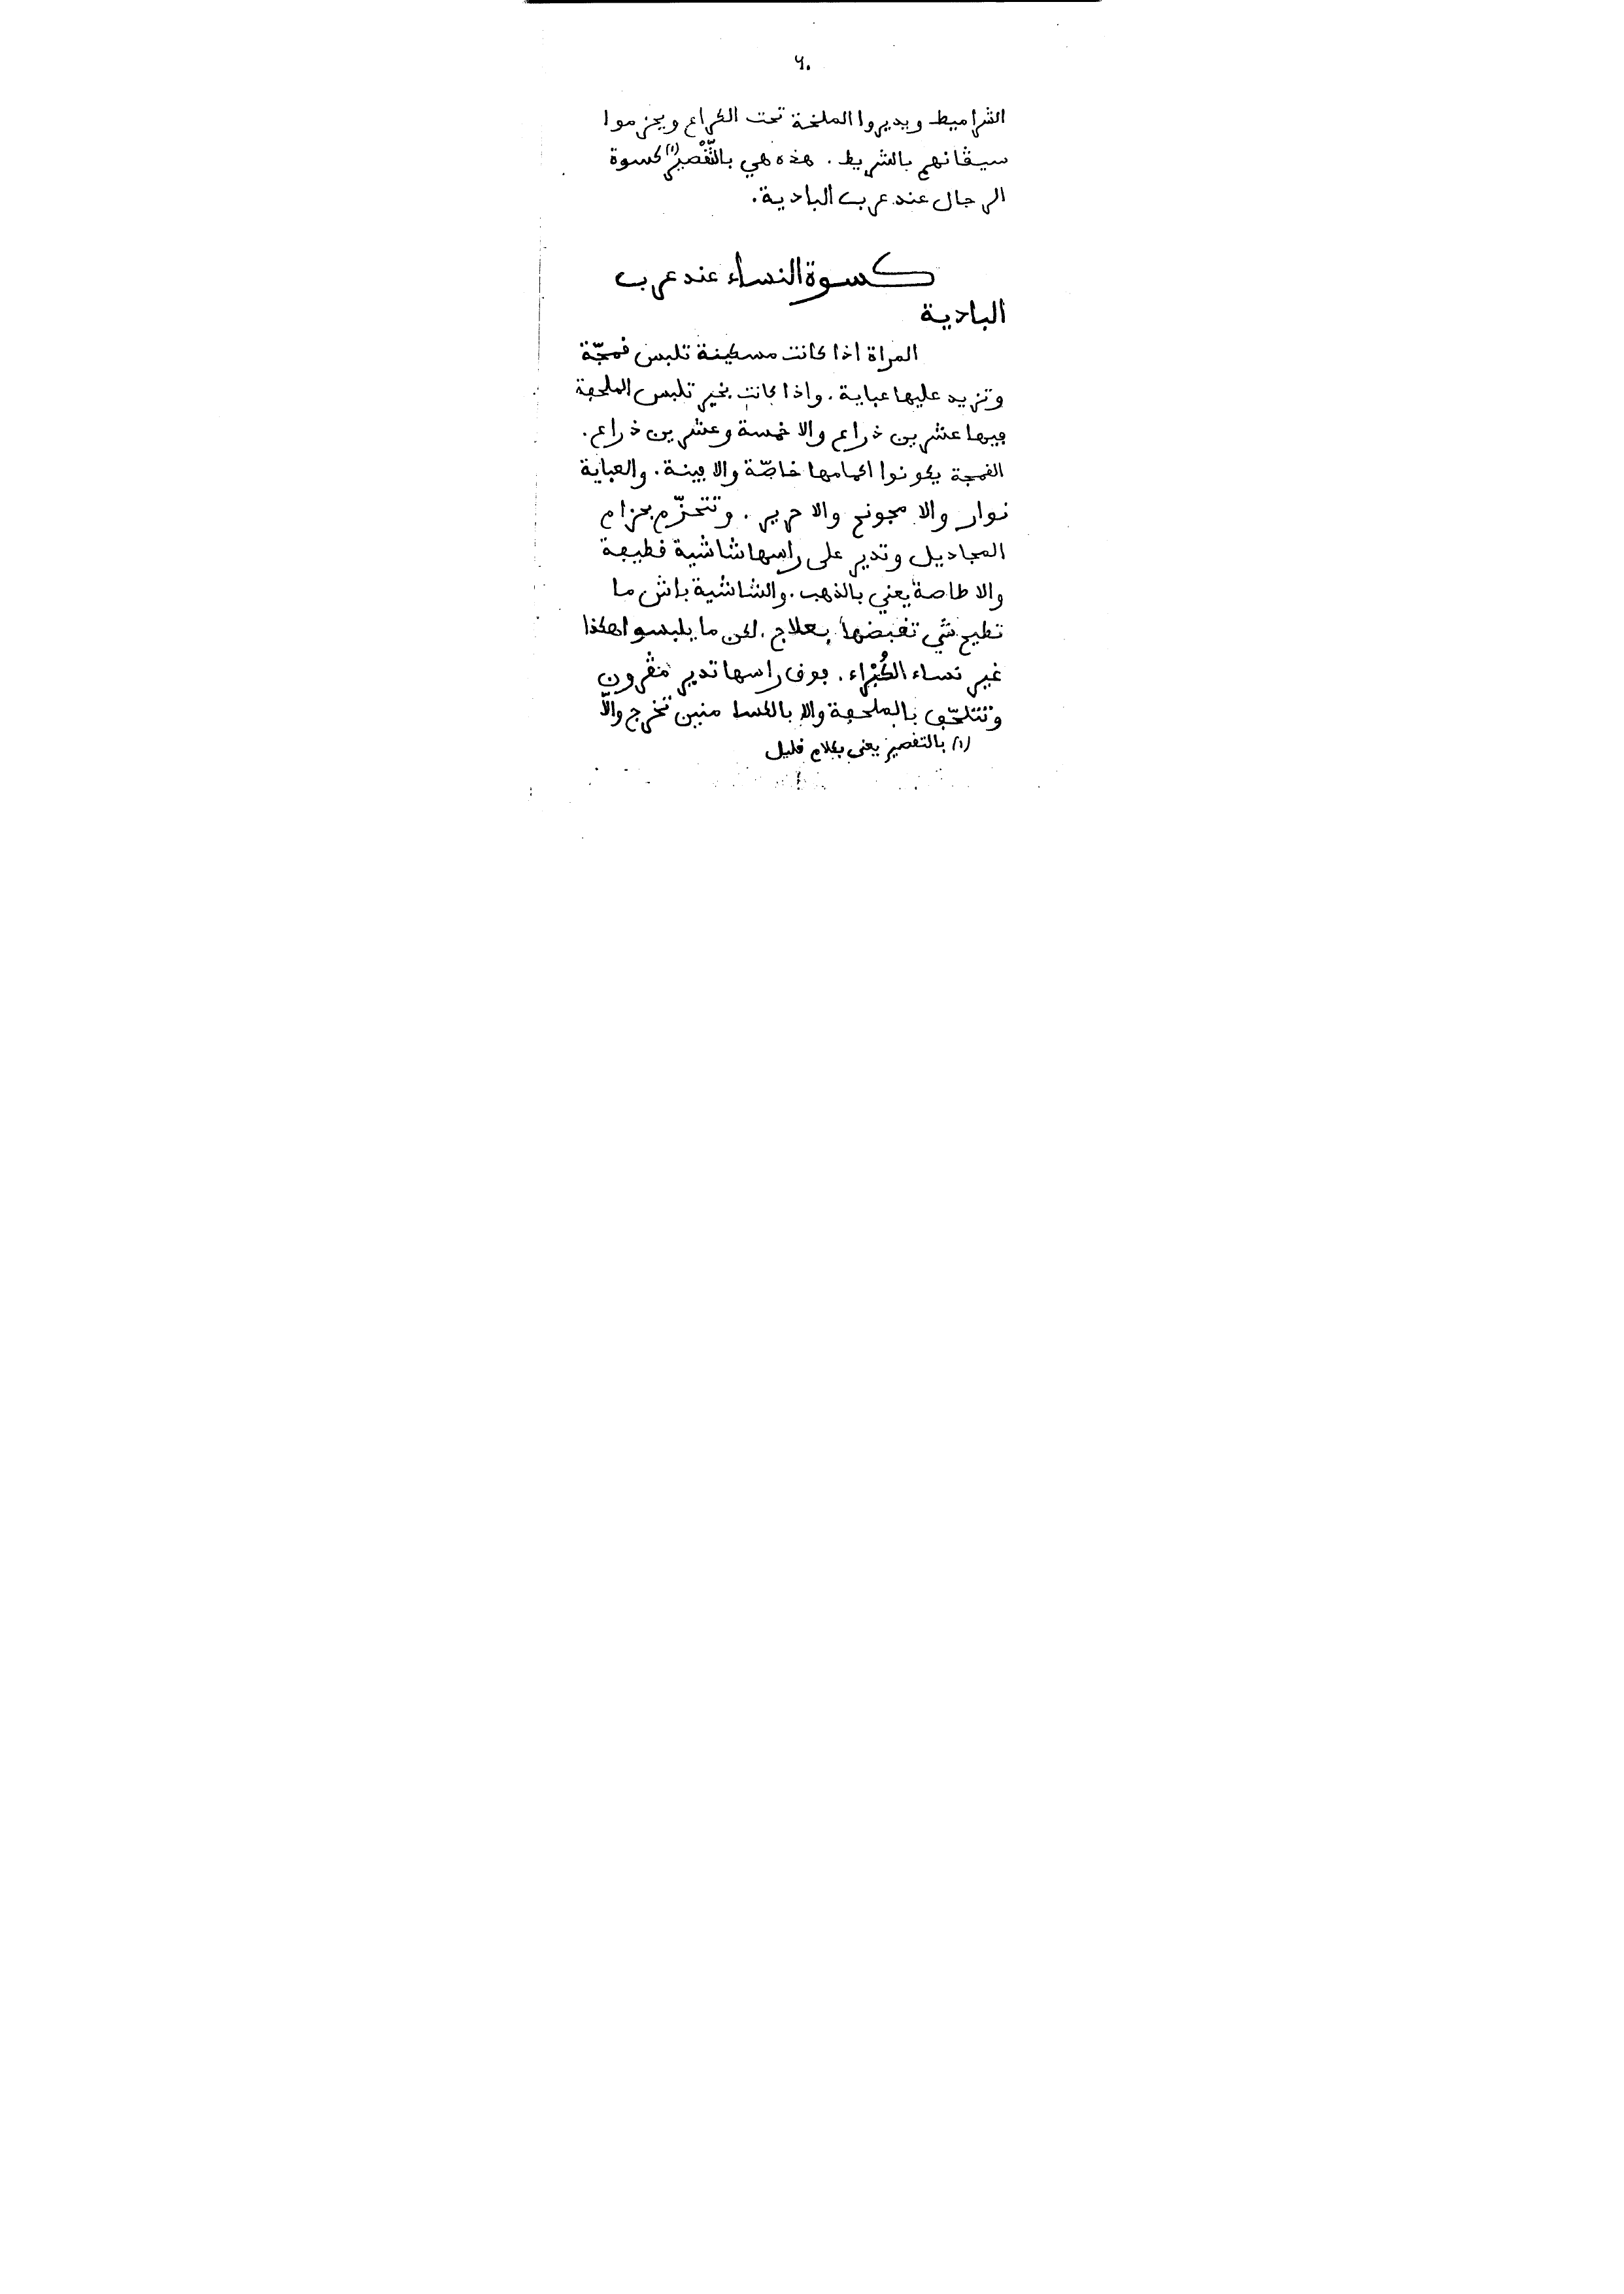 ٦٠
الشراميط ويديروا الملخة تحت الكراع ويحزموا
سيڤانهم بالشريط. هذه هي بالتَّقْصِير (١) كسوة
الرجال عند عرب البادية.
كسوة النساء عند عرب
البادية
المراة اذا كانت مسكينة تلبس قمجّة
وتزيد عليها عباية. واذا كانت بخير تلبس الملحفة
فيها عشرين ذراع والا خمسة وعشرين ذراع.
القمجة يكونوا اكمامها خاصّة والا فينة. والعباية
نوار والا مجونح والا حرير. وتتحزّم بحزام
المجاديل وتدير على راسها شاشية قطيفة
والا طاصة يعني بالذهب. والشاشية باش ما
تطيح شي تقبضها بعلاج. لكن ما يلبسوا هكذا
غير نساء الكُبْراء. فوق راسها تدير مڤرون
وتتلحّف بالملحفة والا بالكسا منين تخرج والّا
(١) بالتقصير يعني بكلام قليل